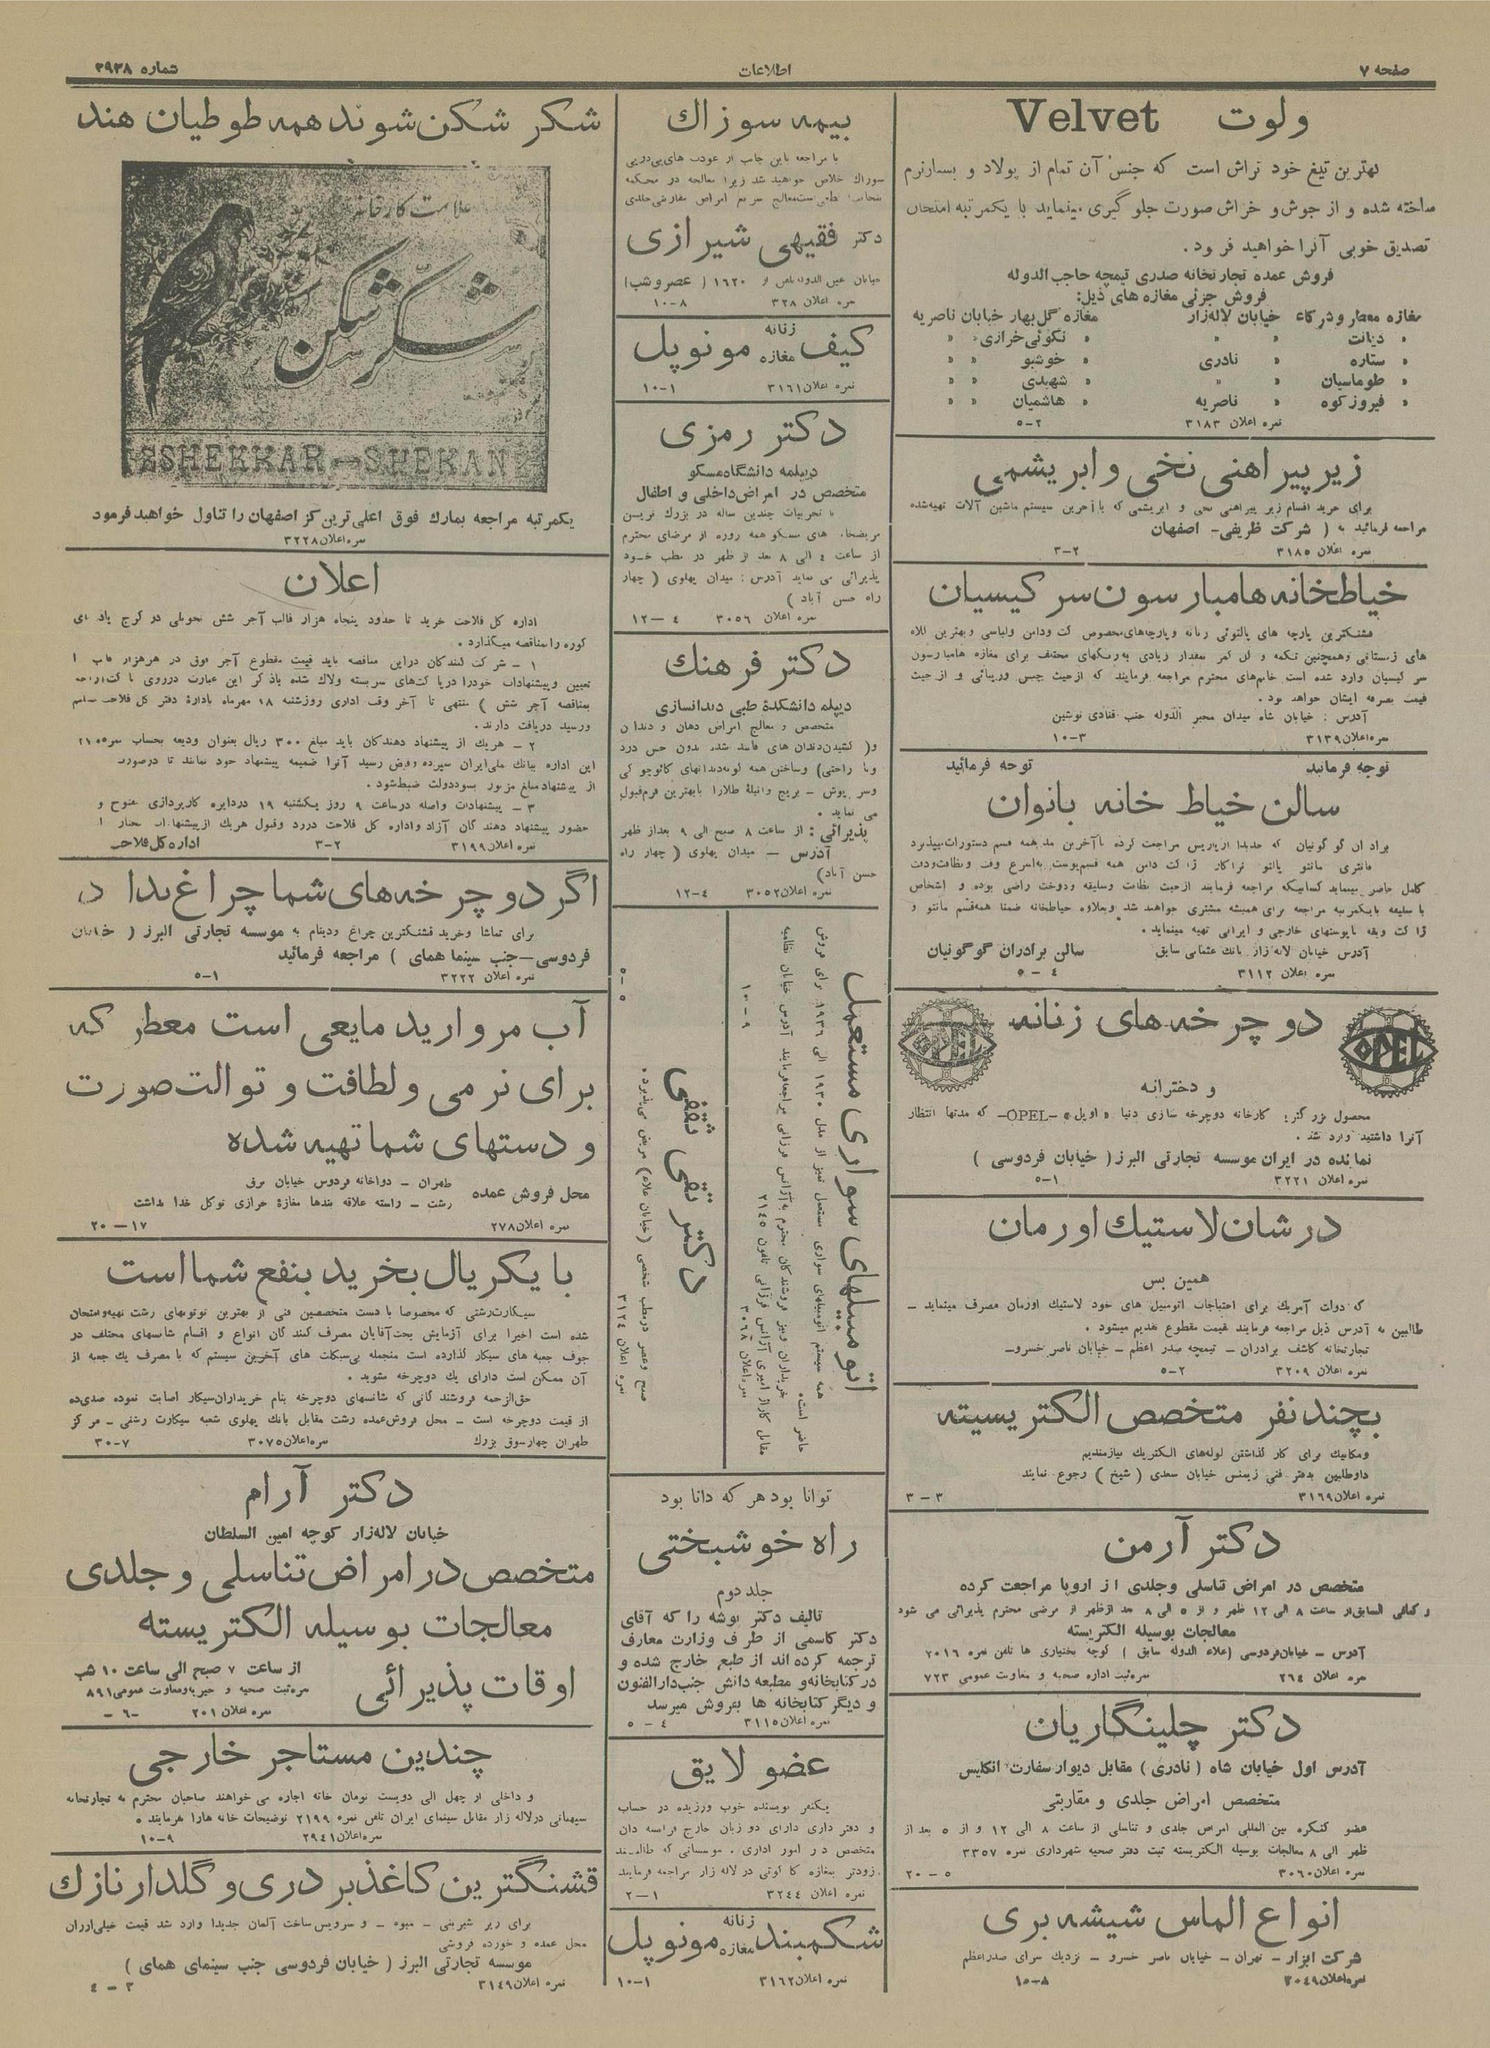 صفحه ۷
اطلاعات
شماره ۳۹۳۸
ولوت Velvet
بهترین تیغ خود تراش است که جنس آن تمام از پولاد و بسیار نرم
ساخته شده و از جوش و خراش صورت جلوگیری مینماید با یکمرتبه امتحان
تصدیق خوبی آنرا خواهید فرمود.
فروش عمده تجارتخانه صدری تیمچه حاجب الدوله
فروش جزئی مغازه های ذیل:
مغازه معطر و شرکاء خیابان لاله‌زار مغازه گل بهار خیابان ناصریه
» دیانت » » » نکوئی خرازی » »
» ستاره » نادری » خوشبو » »
» طوماسیان » » » شهیدی » »
» فیروزکوه » ناصریه » هاشمیان » »
نمره اعلان ۳۱۸۳ ۲-۵
زیر پیراهنی نخی و ابریشمی
برای خرید اقسام زیر پیراهنی نخی و ابریشمی که با آخرین سیستم ماشین آلات تهیه شده
مراجعه فرمائید به ( شرکت ظریفی - اصفهان
نمره اعلان ۳۱۸۵ ۲-۳
خیاطخانه هامبارسون سرکیسیان
قشنگترین پارچه های پالتوئی زنانه و پارچه‌های مخصوص کت ودامن ولباسی وبهترین
های زمستانی وهمچنین تکمه و گل کمر بمقدار زیادی به رنگهای مختلف برای مغازه هامبارسون
سرکیسیان وارد شده است خانم‌های محترم مراجعه فرمایند که از حیث جنس وزیبائی و از حیث
قیمت بصرفه ایشان خواهد بود.
آدرس : خیابان شاه میدان مخبر الدوله جنب قنادی نوشین
نمره اعلان ۳۱۳۹ ۳-۱۰
توجه فرمائید توجه فرمائید
سالن خیاط خانه بانوان
برادران گوگونیان که جدیدا از پاریس مراجعت کرده با آخرین مد همه قسم دستورات میپذیرد
مانتو پالتو ژاکت دامن همه قسم پوست به اسرع وقت و نظافت ودقت
کامل حاضر مینماید کسانیکه مراجعه فرمایند از حیث نظافت وسلیقه ودوخت راضی بوده و اشخاص
با سلیقه با یکمرتبه مراجعه برای همیشه مشتری خواهند شد وبعلاوه خیاطخانه ضمنا همه قسم مانتو و
ژاکت وغیره با پوستهای خارجی و ایرانی تهیه مینماید.
آدرس خیابان لاله زار بانك عثمانی سابق سالن برادران گوگونیان
نمره اعلان ۳۱۱۲ ۴-۵
دو چرخه های زنانه
OPEL
OPEL
و دخترانه
محصول بزرگترین کارخانه دوچرخه سازی دنیا « اوپل » -OPEL- که مدتها انتظار
آنرا داشتید وارد شد.
نماینده در ایران موسسه تجارتی البرز ( خیابان فردوسی )
نمره اعلان ۳۲۲۱ ۱-۵
در شان لاستیك اورمان
همین بس
که دولت آمریك برای احتیاجات اتومبیل های خود لاستیك اورمان مصرف مینماید -
طالبین به آدرس ذیل مراجعه فرمایند قیمت مقطوع تقدیم میشود.
تجارتخانه کاشف برادران - تیمچه صدر اعظم - خیابان ناصر خسرو -
نمره اعلان ۳۲۰۹ ۲-۵
بچند نفر متخصص الکتریسیته
ومکانیك برای کار گذاشتن لوله‌های الکتریك نیازمندیم
داوطلبین بدفتر فنی زیمنس خیابان سعدی ( شیخ ) رجوع نمایند
نمره اعلان ۳۱۶۹ ۳-۳
دکتر آرمن
متخصص در امراض تناسلی وجلدی از اروپا مراجعت کرده
و کمافی السابق از ساعت ۸ الی ۱۲ ظهر و از ۵ الی ۸ بعد ازظهر از مرضی محترم پذیرائی می شود
معالجات بوسیله الکتریسته
آدرس - خیابان فردوسی (علاء الدوله سابق ) کوچه بختیاری ها تلفن نمره ۲۰۱۶
نمره اعلان ۲۶۴ نمره ثبت اداره صحیه و معاونت عمومی ۷۲۳
دکتر چلینگاریان
آدرس اول خیابان شاه ( نادری ) مقابل دیوار سفارت انگلیس
متخصص امراض جلدی و مقاربتی
عضو کنگره بین المللی امراض جلدی و تناسلی از ساعت ۸ الی ۱۲ و از ۵ بعد از
ظهر الی ۸ معالجات بوسیله الکتریسته ثبت دفتر صحیه شهرداری نمره ۳۳۵۷
نمره اعلان ۳۰۶۰ ۵-۲۰
انواع الماس شیشه بری
شرکت ابزار - تهران - خیابان ناصر خسرو - نزدیك سرای صدراعظم
نمره اعلان ۳۰۴۹ ۸-۱۵
بیمه سوزاك
با مراجعه باین جانب از عودت های پی‌درپی
سوزاك خلاص خواهید شد زیرا معالجه در محکمه
دکتر فقیهی شیرازی
خیابان عین الدوله تلفن ۱۶۲۰ ( عصر و شب )
نمره اعلان ۳۲۸ ۸-۱۰
کیف زنانه مغازه مونوپل
نمره اعلان ۳۱۶۱ ۱-۱۰
دکتر رمزی
دیپلمه دانشگاه مسکو
متخصص در امراض داخلی و اطفال
با تجربیات چندین ساله در بزرگ ترین
مریضخانه های مسکو همه روزه از مرضای محترم
از ساعت ٤ الی ۸ بعد از ظهر در مطب خود
پذیرائی می نماید آدرس : میدان پهلوی ( چهار
راه حسن آباد )
نمره اعلان ۳۰۵۶ ٤-۱۲
دکتر فرهنك
دیپلمه دانشکدهٔ طبی دندانسازی
متخصص و معالج امراض دهان و دندان
و( کشیدن دندان های فاسد شده بدون حس درد
و نا راحتی) وساختن همه گونه دندانهای کائوچوکی
وسر پوش - بریج وانپلهٔ طلا را با بهترین فرم قبول
می نماید.
پذیرائی : از ساعت ۸ صبح الی ۹ بعد از ظهر
آدرس - میدان پهلوی ( چهار راه
حسن آباد)
نمره اعلان ۳۰۵۲ ٤-۱۲
اتومبیلهای سواری مستعمل
همه سیستم اتومبیلهای سواری مستعمل تمیز از مدل ۱۹۳۰ الی ۱۹۳۶ برای فروش
حاضر است.
خریداران ونیز فروشندگان محترم به آژانس فرزانی مراجعه فرمایند آدرس خیابان نظامیه
مقابل گاراژ امیری آژانس فرزانی تلفون ۲۱٤۵
نمره اعلان ۳۰۶۸ ۹-۱۰
دکتر تقی ثقفی
صبح وعصر در مطب شخصی (خیابان علاء) مریض می‌پذیرد.
نمره اعلان ۳۱۲٤ ۵-۵
توانا بود هر که دانا بود
راه خوشبختی
جلد دوم
تالیف دکتر بوشه را که آقای
دکتر کاسمی از طرف وزارت معارف
ترجمه کرده اند از طبع خارج شده و
در کتابخانه و مطبعه دانش جنب دارالفنون
و دیگر کتابخانه ها بفروش میرسد
نمره اعلان ۳۱۱۵ ٤-۵
عضو لایق
یکنفر نویسنده خوب ورزیده در حساب
و دفتر داری دارای دو زبان خارج فرانسه دان
متخصص در امور اداری. موسساتی که طالبند
زودتر بمغازه کاکوئی در لاله زار مراجعه فرمایند
نمره اعلان ۳۲٤٤ ۱-۲
شکمبند زنانه مغازه مونوپل
نمره اعلان ۳۱۶۲ ۱-۱۰
شکر شکن شوند همه طوطیان هند
علامت کارخانه
شکر شکن
SHEKKAR-SHEKAN
یکمرتبه مراجعه بمارك فوق اعلی ترین گز اصفهان را تناول خواهید فرمود
نمره اعلان ۳۲۲۸
اعلان
اداره کل فلاحت خرید تا حدود پنجاه هزار قالب آجر شش تحویلی در کرج یا پای
کوره را بمناقصه میگذارد.
۱ - شرکت کنندگان در این مناقصه باید قیمت مقطوع آجر فوق در هر هزار قالب را
تعیین وپیشنهادات خود را در پاکت‌های سربسته ولاك شده با ذکر این عبارت در روی پاکت (راجع
بمناقصه آجر شش ) منتهی تا آخر وقت اداری روز شنبه ۱۸ مهرماه بادارهٔ دفتر کل فلاحت تسلیم
ورسید دریافت دارند.
۲ - هریك از پیشنهاد دهندگان باید مبلغ ۳۰۰ ریال بعنوان ودیعه بحساب نمره
این اداره ببانك ملی ایران سپرده وقبض رسید آنرا ضمیمه پیشنهاد خود نمایند تا در صورت
از پیشنهاد مبلغ مزبور بسود دولت ضبط شود.
۳ - پیشنهادات واصله در ساعت ۹ روز یکشنبه ۱۹ در دایره کارپردازی مفتوح و
حضور پیشنهاد دهندگان آزاد واداره کل فلاحت در رد وقبول هریك از پیشنهادات مختار است
نمره اعلان ۳۱۹۹ ۲-۳ اداره کل فلاحت
اگر دو چرخه‌های شما چراغ ندارد
برای تماشا وخرید قشنگترین چراغ ودینام به موسسه تجارتی البرز ( خیابان
فردوسی - جنب سینما همای ) مراجعه فرمائید
نمره اعلان ۳۲۲۲ ۱-۵
آب مروارید مایعی است معطر که
برای نرمی و لطافت و توالت صورت
و دستهای شما تهیه شده
محل فروش عمده
طهران - دواخانه فردوس خیابان برق
رشت - راسته علاقه بندها مغازهٔ خرازی توکل خدا بداشت
نمره اعلان ۲۷۸ ۱۷-۲۰
با یکریال بخرید بنفع شما است
سیگارت رشتی که مخصوصا با دست متخصصین فنی از بهترین توتونهای رشت تهیه وامتحان
شده است اخیرا برای آزمایش بخت آقایان مصرف کنندگان انواع و اقسام شانسهای مختلف در
جوف جعبه های سیگار گذارده است منجمله بی‌سیکلت های آخرین سیستم که با مصرف یك جعبه از
آن ممکن است دارای یك دوچرخه بشوید.
حق‌الزحمه فروشندگانی که شانسهای دوچرخه بنام خریداران سیگار اصابت نموده صدی ده
از قیمت دوچرخه است - محل فروش عمده رشت مقابل بانك پهلوی شعبه سیگارت رشتی - مرکز
طهران چهارسوق بزرگ نمره اعلان ۳۰۷۵ ۷-۳۰
دکتر آرام
خیابان لاله‌زار کوچه امین السلطان
متخصص در امراض تناسلی و جلدی
معالجات بوسیله الکتریسته
اوقات پذیرائی
از ساعت ۷ صبح الی ساعت ۱۰ شب
نمره ثبت صحیه و خیریه ومعاونت عمومی ۸۹۱
نمره اعلان ۲۰۱ -۶-
چندین مستاجر خارجی
و داخلی از چهل الی دویست تومان خانه اجاره می خواهند صاحبان محترم به تجارتخانه
سیهمانی در لاله زار مقابل سینمای ایران تلفن نمره ۲۱۹۹ توضیحات خانه هارا بفرمایند.
نمره اعلان ۲۹٤۱ ۹-۱۰
قشنگترین کاغذ بر دری و گلدار نازك
برای زیر شیرینی - میوه - و سرویس ساخت آلمان جدیدا وارد شد قیمت خیلی ارزان
محل عمده و خورده فروشی
موسسه تجارتی البرز ( خیابان فردوسی جنب سینمای همای )
نمره اعلان ۳۱٤۹ ۳-٤